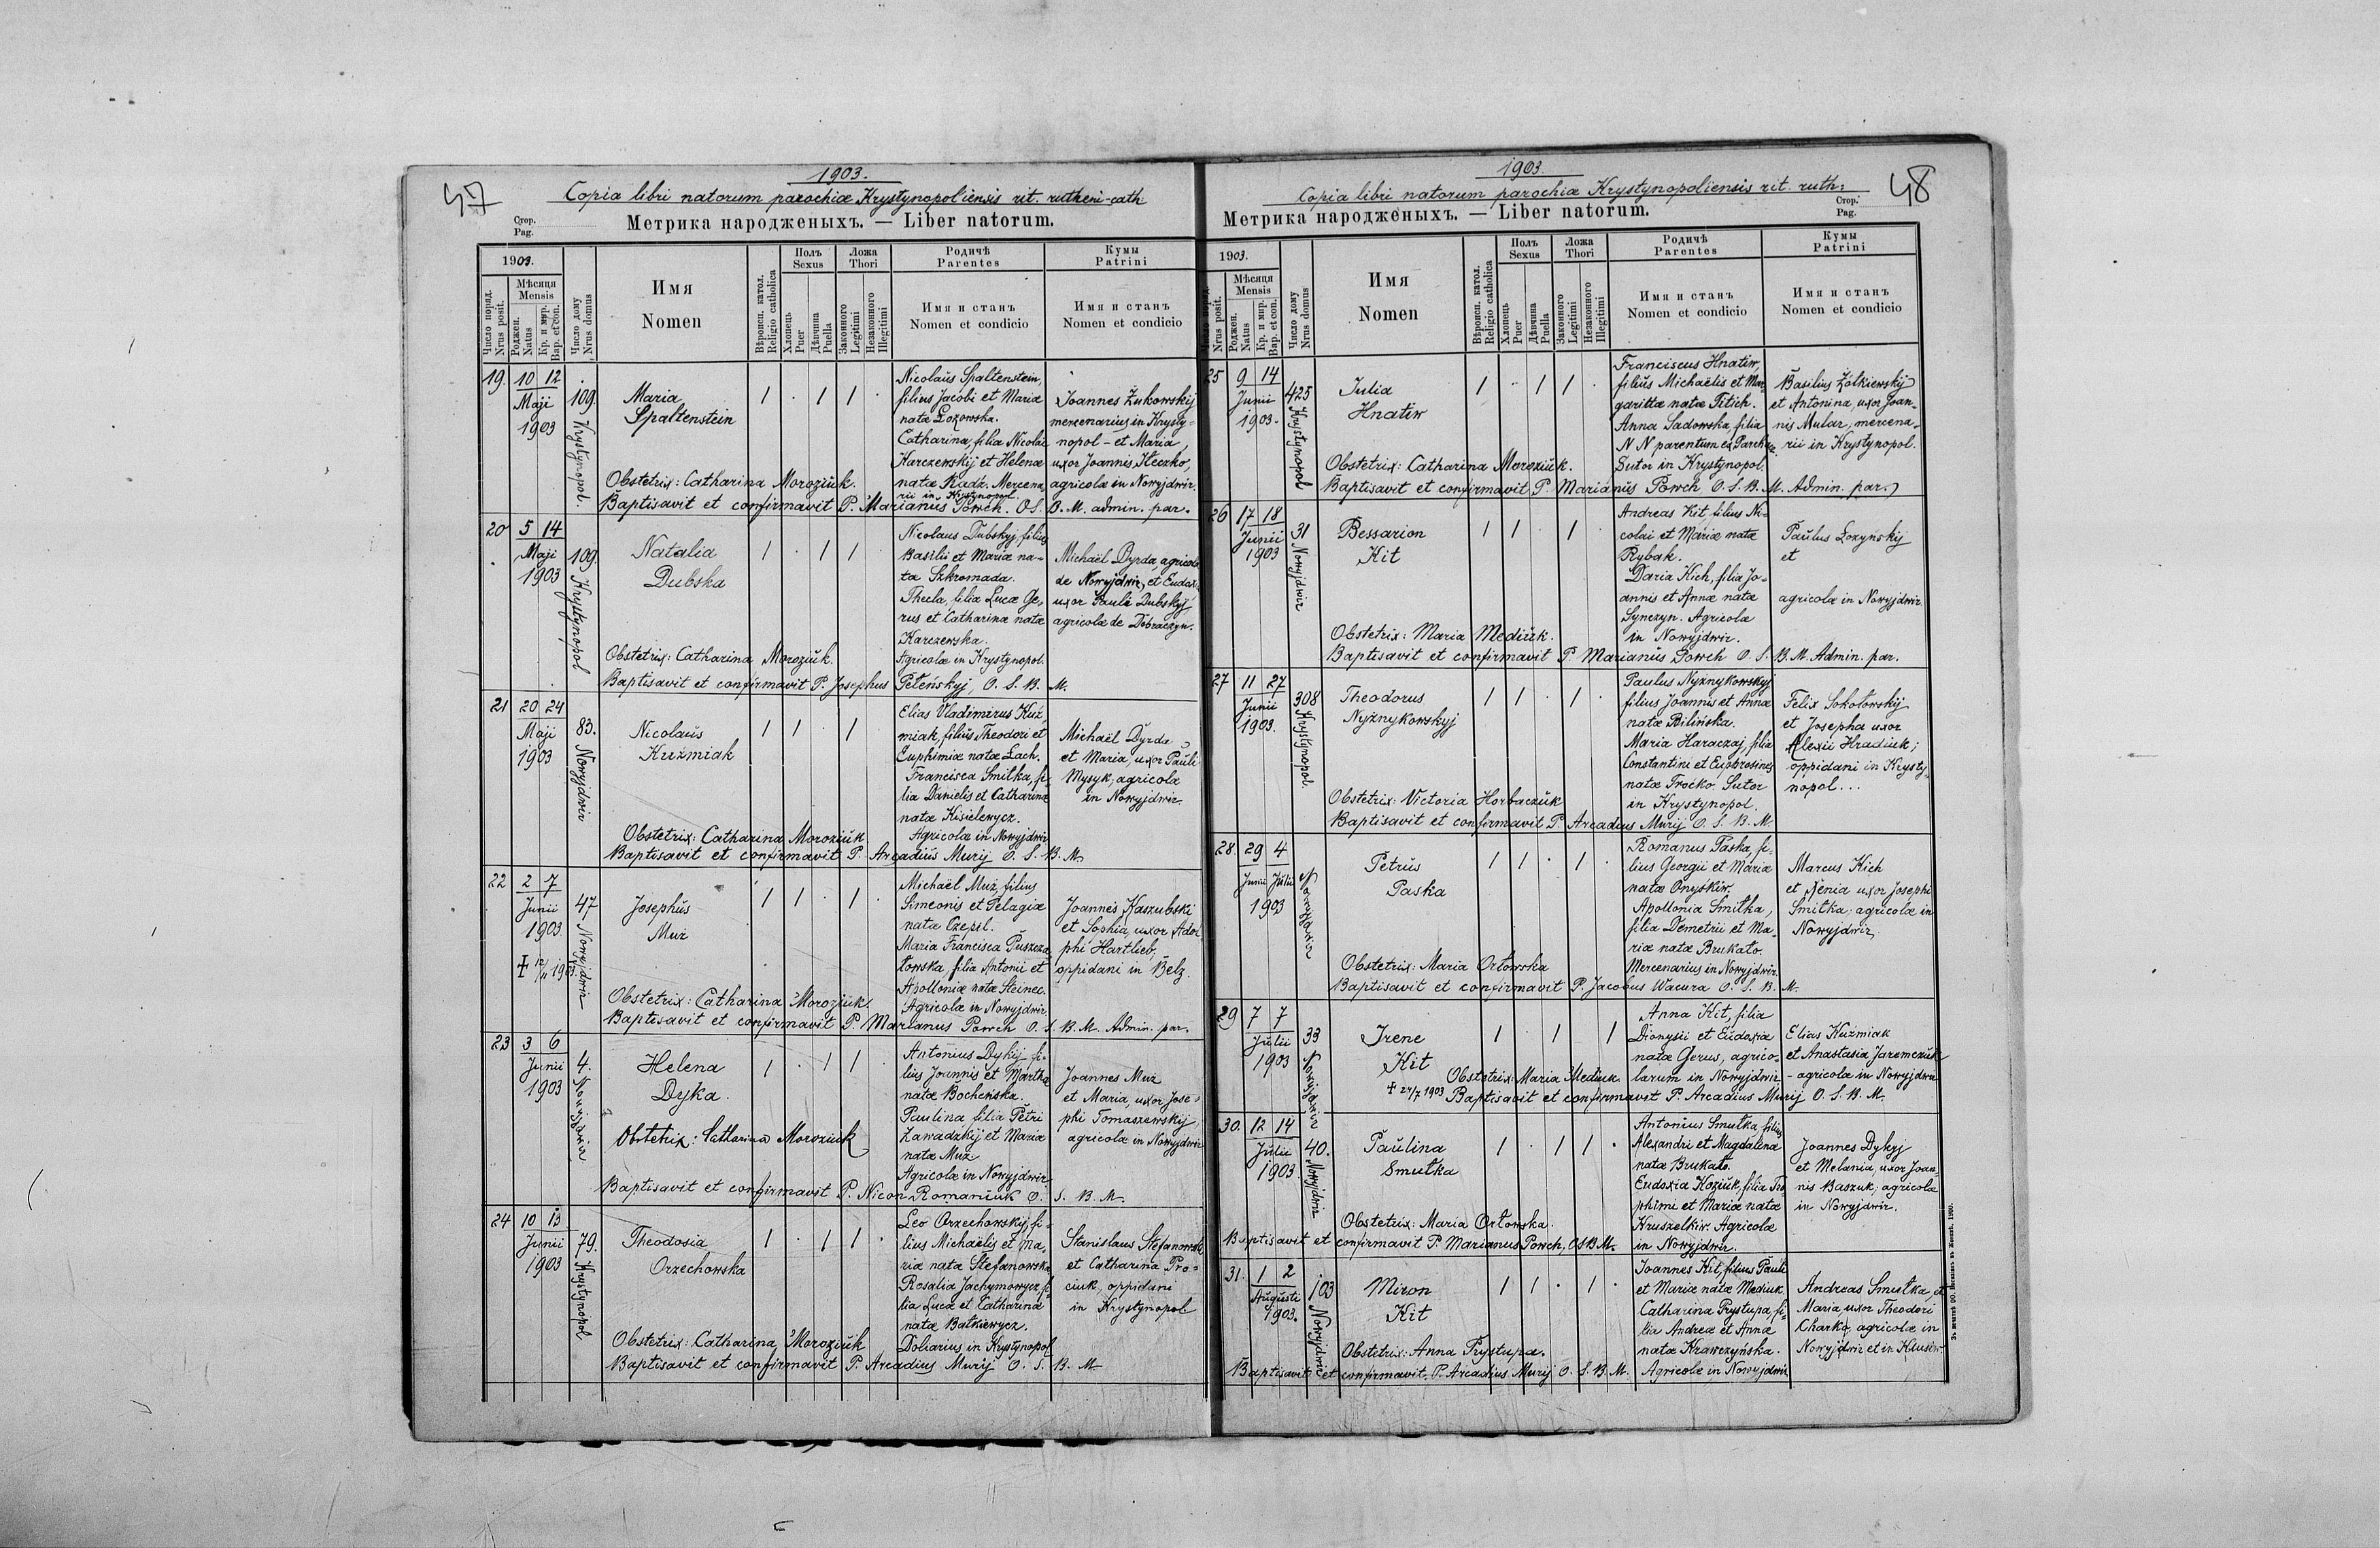 47
1903.
Copia libri natorum parochiæ Krystynopoliensis rit. rutheni-cath.
Стор.
Pag.
Метрика народженыхъ. — Liber natorum.
1903.
Число поряд.
Nrus posit.
Мѣсяця
Mensis
Роджен.
Natus
Кр. и мvр.
Bap. et con.
Число дому
Nrus domus
Имя
Nomen
Вѣроисп. катол.
Religio catholica
Полъ
Sexus
Хлопець
Puer
Дѣвчина
Puella
Ложа
Thori
Законного
Legitimi
Незаконного
Illegitimi
Родичѣ
Parentes
Имя и станъ
Nomen et condicio
Кумы
Patrini
Имя и станъ
Nomen et condicio
19. 10 12
Maji
1903
109.
Krystynopol.
Maria
Spaltenstein
1 · 1 1 ·
Nicolaŭs Spaltenstein,
filius Jacobi et Mariæ
natæ Łozowska.
Catharina, filia Nicolai
Karczewskij et Helenæ
natæ Radz. Mercena-
rii in Krystynopol.
Joannes Żukowskij
mercenarius in Krysty-
nopol - et Maria,
uxor Joannis Iteczko,
agricolæ in Nowyjdwir.
Obstetrix: Catharina Moroziŭk.
Baptisavit et confirmavit P. Marianus Powch. O. S. B. M. admin. par.
20 5 14
Maji
1903
109.
Krystynopol
Natalia
Dubska
1 · 1 1
Nicolaus Dubskyj, filius
Basilii et Mariæ na-
tæ Szkromada.
Thecla, filia Lucæ Ge-
rus et Catharinæ natæ
Karczewska.
Agricolæ in Krystynopol.
Michaël Dyrda, agricola
de Nowyjdwir, et Eudoxia
uxor Pauli Dubskyj,
agricolæ de Dobraczyn.
Obstetrix: Catharina Moroziŭk.
Baptisavit et confirmavit P. Josephus Peteńskyj, O. S. B. M.
21 20 24
Maji
1903
83.
Nowyjdwir
Nicolaŭs
Kuźmiak
1 1 · 1
Elias Vladimirus Kuź-
miak, filiŭs Theodori et
Euphimiæ natæ Lach.
Francisca Smitka, fi-
lia Danielis et Catharinæ
natæ Kisielewycz.
Agricolæ in Nowyjdwir
Michaël Dyrda
et Maria, uxor Paŭli
Mysyk, agricolæ
in Nowyjdwir.
Obstetrix: Catharina Moroziŭk
Baptisavit et confirmavit P. Arcadiŭs Murij O. S. B. M.
22 2 7
Junii
1903.
✝ 12/11 1903.
47
Nowyjdwir
Josephŭs
Muż
1 1 · 1 ·
Michaël Muż, filius
Simeonis et Pelagiæ
natæ Czepil.
Maria Francisca Puszcza-
łowska, filia Antonii et
Apolloniæ natæ Steinec.
Agricolæ in Nowyjdwir.
Joannes Kaszubski
et Sophia, uxor Adol-
phi Hartlieb,
oppidani in Bełz.
Obstetrix: Catharina Moroziŭk.
Baptisavit et confirmavit P. Marianus Powch O. S. B. M. Admin. par.
23 3 6
Junii
1903
4.
Nowyjdwir
Helena
Dyka.
1 · 1 1 ·
Antonius Dykij, fi-
lius Joannis et Marthæ
natæ Bocheńska.
Paulina filia Petri
Zawadzkij et Mariæ
natæ Muż
Agricolæ in Nowyjdwir.
Joannes Muż
et Maria, uxor Jose-
phi Tomaszewskij
agricolæ in Nowyjdwir
Obstetrix: Catharina Moroziuk
Baptisavit et confirmavit P. Nicon Romaniŭk O. S. B. M.
24 10 13
Junii
1903
79.
Krystynopol
Theodosia
Orzechowska
1 · 1 1 ·
Leo Orzechowskij, fi-
lius Michaëlis et Ma-
riæ natæ Stefanowska
Rosalia Jachymowycz, fi-
lia Lucæ et Catharinæ
natæ Batkiewycz.
Doliarius in Krystynopol
Stanislaus Stefanowski
et Catharina Pro-
ciuk, oppidani
in Krystynopol
Obstetrix: Catharina Moroziŭk
Baptisavit et confirmavit P. Arcadius Murij O. S. B. M.
48
1903
Copia libri natorum parochiæ Krystynopoliensis rit. ruth:
Стор.
Pag.
Метрика народженыхъ. — Liber natorum.
1903.
Число поряд.
Nrus posit.
Мѣсяця
Mensis
Роджен.
Natus
Кр. и мvр.
Bap. et con.
Число дому
Nrus domus
Имя
Nomen
Вѣроисп. катол.
Religio catholica
Полъ
Sexus
Хлопець
Puer
Дѣвчина
Puella
Ложа
Thori
Законного
Legitimi
Незаконного
Illegitimi
Родичѣ
Parentes
Имя и станъ
Nomen et condicio
Кумы
Patrini
Имя и станъ
Nomen et condicio
25 9 14
Junii
1903.
425
Krystynopol
Julia
Hnatiw
1 · 1 1
Franciscus Hnatiw,
filiŭs Michaëlis et Mar-
garittæ natæ Titich.
Anna Sadowska, filia
N N parentum ex Parchacz.
Sutor in Krystynopol.
Basilius Żółkiewskij
et Antonina, uxor Joan-
nis Mular, mercena-
rii in Krystynopol.
Obstetrix: Catharina Moroziŭk.
Baptisavit et confirmavit P. Marianŭs Powch O. S. B. M. Admin. par.
26 17 18
Junii
1903
31
Nowyjdwir
Bessarion
Kit
1 1 · 1
Andreas Kit, filius Ni-
colai et Mariæ natæ
Rybak.
Daria Kich, filia Jo-
annis et Annæ natæ
Synczyn. Agricolæ
in Nowyjdwir.
Paŭlus Łozyńskij
et
agricolæ in Nowyjdwir
Obstetrix: Maria Mediŭk.
Baptisavit et confirmavit P. Marianŭs Powch O. S. B. M. Admin. par.
27 11 27
Junii
1903.
308
Krystynopol.
Theodorus
Nyżnykowskyj
1 1 · 1 ·
Paulus Nyżnykowskyj
filius Joannis et Annæ
natæ Bilińska.
Maria Haraczaj, filia
Constantini et Euphrosines
natæ Troćko. Sutor
in Krystynopol.
Felix Sokołowskij
et Josepha uxor
Alexii Hradiuk;
oppidani in Krysty-
nopol...
Obstetrix: Victoria Horbaczŭk
Baptisavit et confirmavit P. Arcadius Murij O. S. B. M.
28. 29 4
Junii Jŭlii
1903
5
Nowyjdwir
Petrŭs
Paska
1 1 · 1 ·
Romanus Paska, fi-
lius Georgii et Mariæ
natæ Onyskiw.
Apollonia Smitka,
filia Demetrii et Ma-
riæ natæ Brukato.
Mercenarius in Nowyjdwir.
Marcus Kich
et Xenia uxor Josephi
Smitka; agricolæ in
Nowyjdwir.
Obstetrix: Maria Ortowska
Baptisavit et confirmavit P. Jacobus Wacura O. S. B. M.
29 7 7
Jŭlii
1903
33
Nowyjdwir
Irene
Kit
✝ 24/7 1903
1 1 1
Anna Kit, filia
Dionysii et Eŭdoxiæ
natæ Gerus, agrico-
larum in Nowyjdwir
Elias Kuźmiak
et Anastasia Jaremczŭk
- agricolæ in Nowyjdwir
Obstetrix: Maria Mediuk.
Baptisavit et confirmavit P. Arcadius Murij O. S. B. M.
30. 12 14
Jŭlii
1903
40.
Nowyjdwir
Paŭlina
Smutka
1 · 1 1 ·
Antonius Smutka, filius
Alexandri et Magdalenæ
natæ Brukato.
Eudoxia Koziŭk, filia Tro-
phimi et Mariæ natæ
Kruszelkiw. Agricolæ
in Nowyjdwir.
Joannes Dykyj
et Melania, uxor Joan-
nis Baszuk; agricolæ
in Nowyjdwir.
Obstetrix: Maria Ortowska.
Baptisavit et confirmavit P. Marianus Powch, O S B M.
31. 1 2
Augusti
1903.
103
Nowyjdwir
Miron
Kit
1 1 · 1 ·
Joannes Kit, filius Paŭli
et Mariæ natæ Mediuk.
Catharina Prystupa, fi-
lia Andreæ et Annæ
natæ Krawczyńska.
Agricolæ in Nowyjdwir
Andreas Smutka, et
Maria uxor Theodori
Charko, agricolæ in
Nowyjdwir et in Klusów.
Obstetrix: Anna Prystupa.
Baptisavit et confirmavit P. Arcadius Murij O. S. B. M.